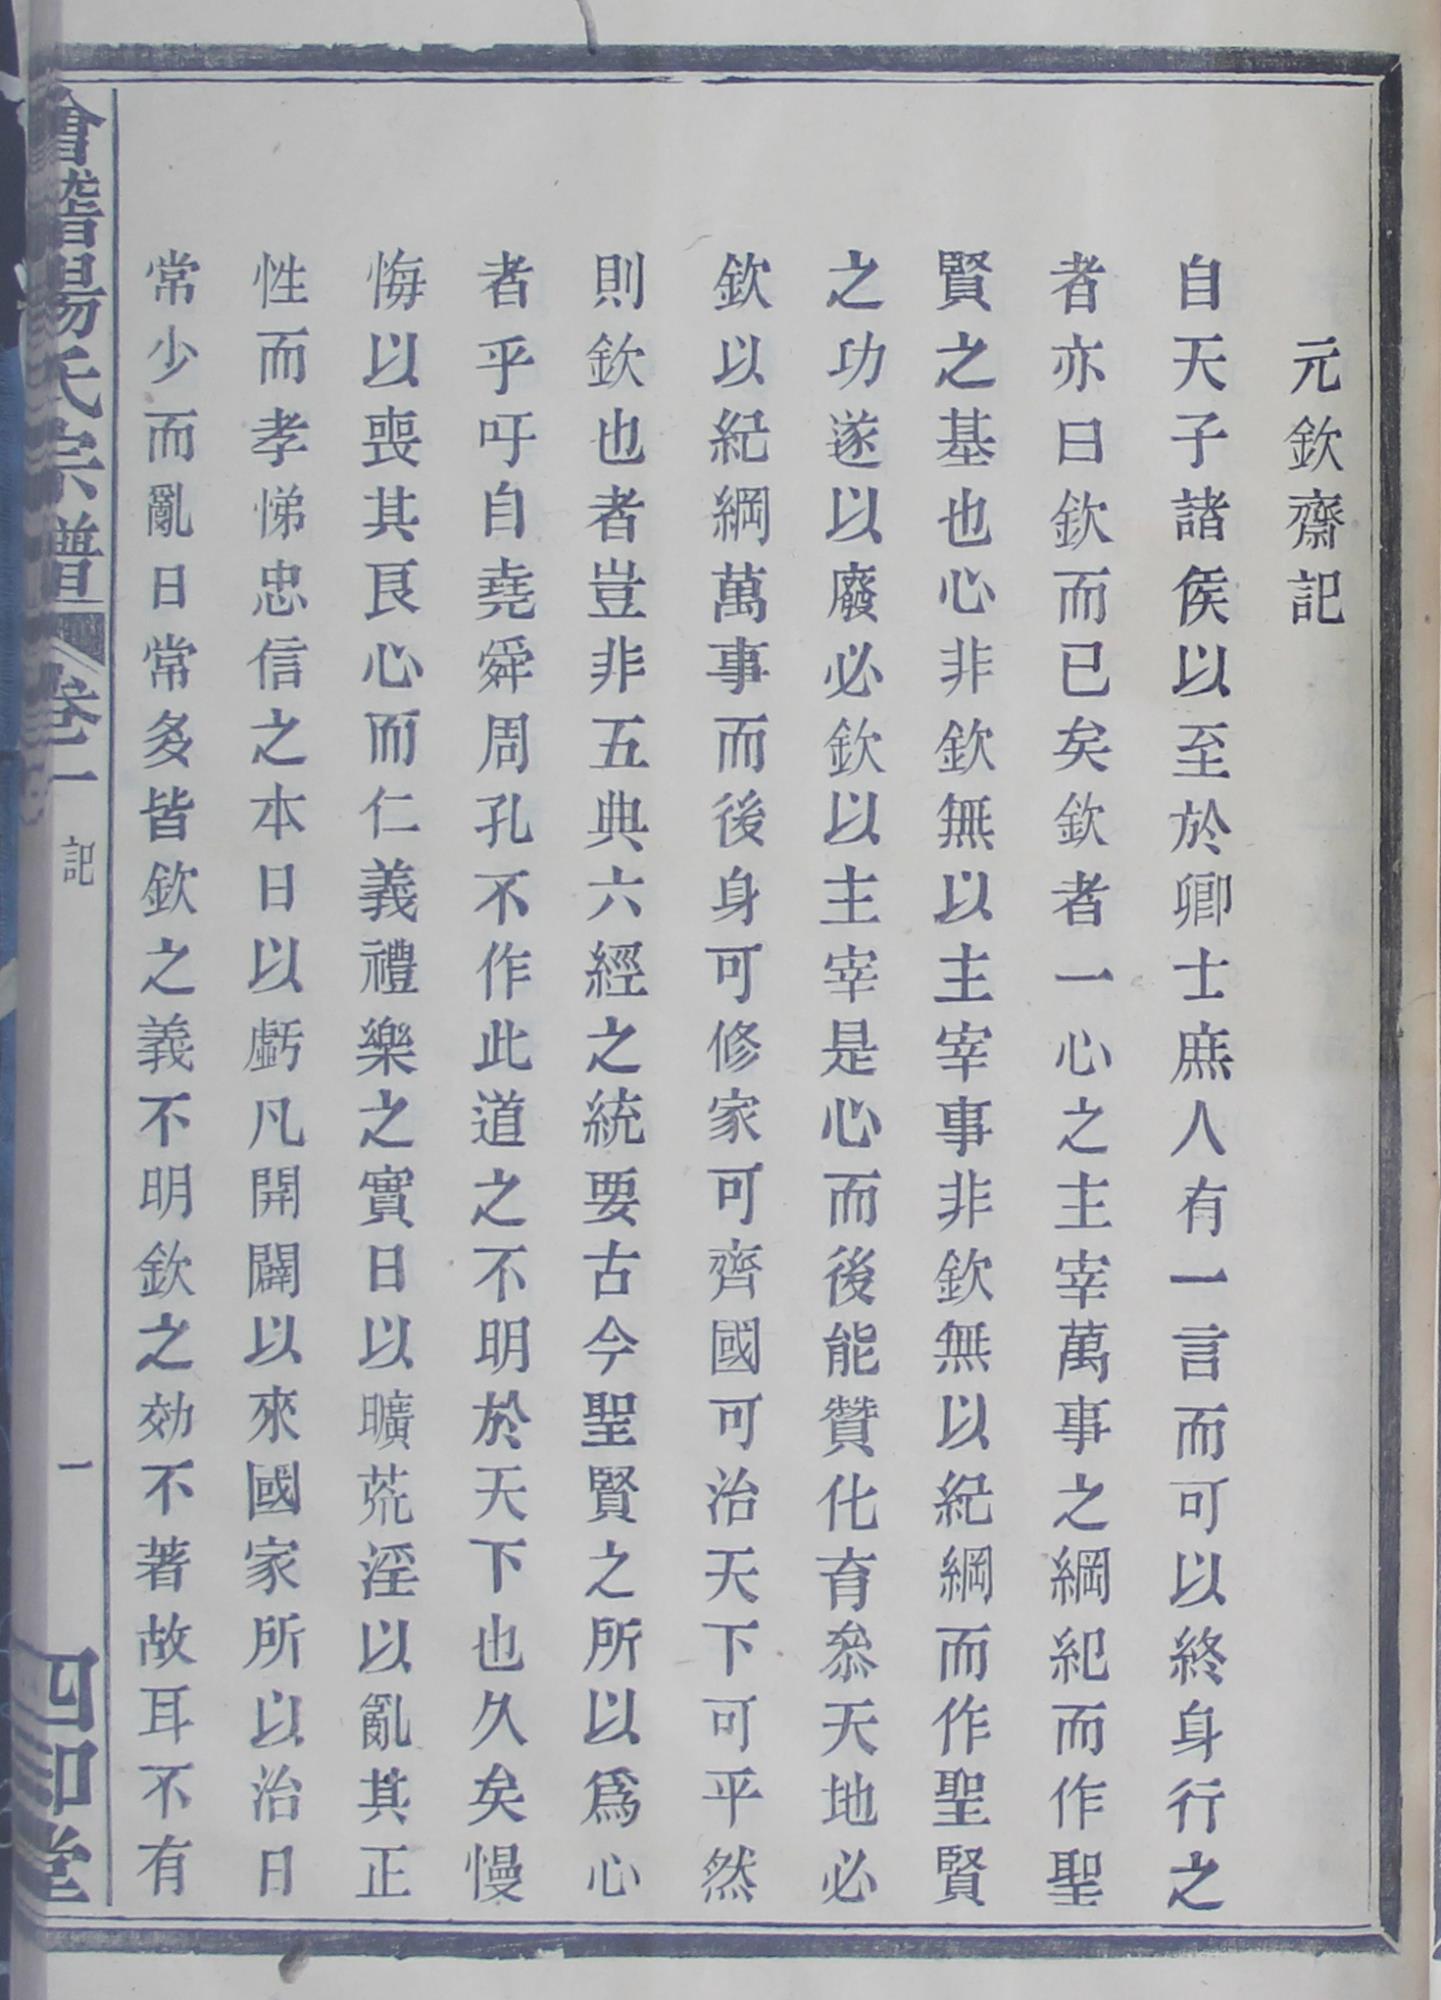 元欽齋記
自天子諸矦以至於卿士庶人有一言而可以終身行之
者亦曰欽而已矣欽者一心之主宰萬事之綱紀而作聖
賢之基也心非欽無以主宰事非欽無以紀綱而作聖賢
之功遂以廢必欽以主宰是心而後能贊化育叅天地必
欽以紀綱萬事而後身可修家可齊國可治天下可平然
則欽也者豈非五典六經之統要古今聖賢之所以爲心
者乎吁自堯舜周孔不作此道之不明於天下也久矣慢
悔以喪其良心而仁義禮樂之實日以曠荒淫以亂其正
性而孝悌忠信之本日以虧凡開闢以來國家所以治日
常少而亂日常多皆欽之義不明欽之効不著故耳不有
會稽楊氏宗譜 卷一 記 一 四知堂